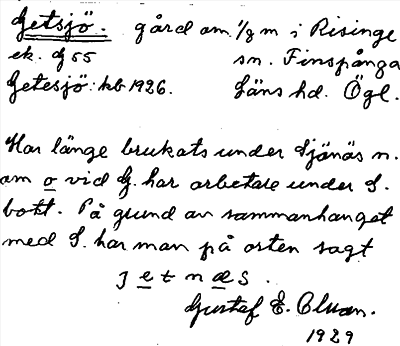 Getsjö. gård om 1/8 m i Risinge
ek. G 55 sn. Finspånga
Getesjö: kb 1926. Läns hd. Ögl.
Har länge brukats under Sjönäs n.
om o vid G. har arbetare under S.
bott. På grund av sammanhanget
med S. har man på orten sagt
j e t n æ s.
Gustaf E.
1929